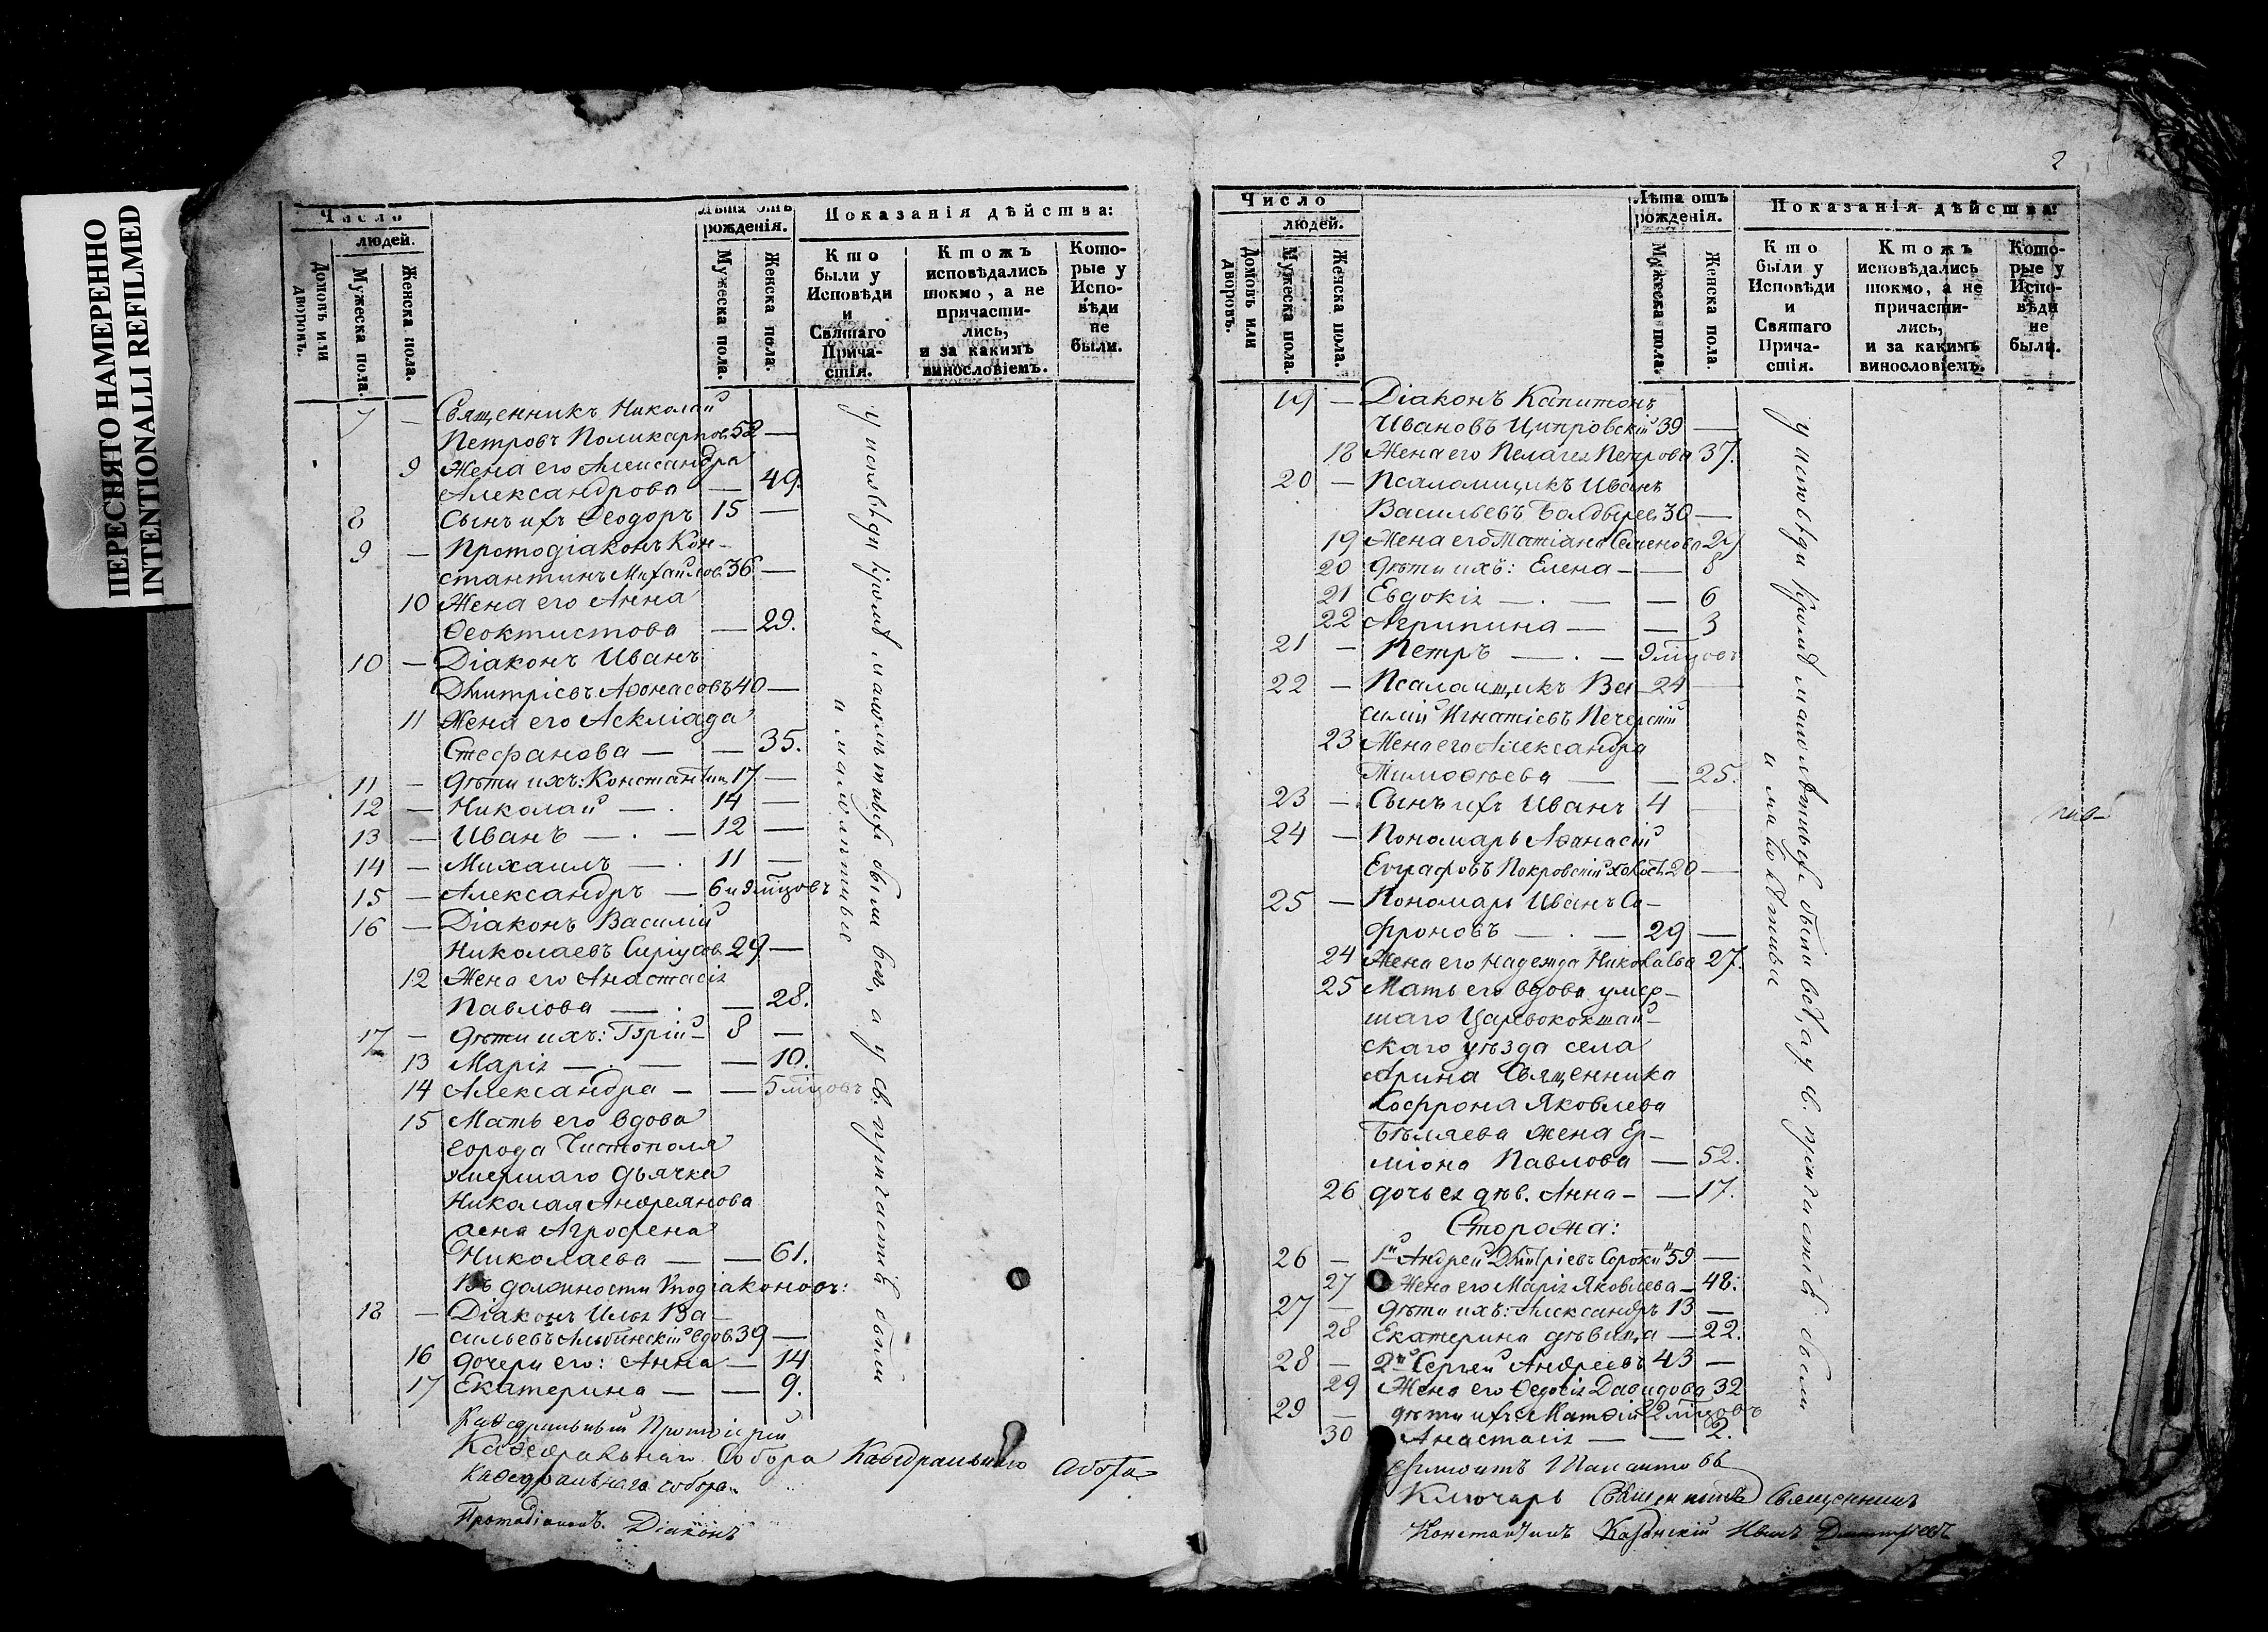 ПЕРЕСНЯТО НАМЕРЕННО
INTENTIONALLI REFILMED
Число
людей.
Домовъ или дворовъ.
Мужеска пола.
Женска пола.
Лѣта отъ рожденія.
Мужеска пола.
Женска пола.
Показанія дѣйства:
Кто были у Исповѣди и Святаго Причастія.
Ктожъ исповѣдались токмо, а не причастились, и за какимъ винословіемъ.
Которые у Исповѣди не были.
7 — Священникъ Николай
Петровъ Поликарпов. 52 —
9 Жена его Александра
Александрова — 49.
8 Сынъ ихъ Ѳеодоръ 15 —
9 — Протодіаконъ Кон-
стантинъ Михайлов. 36 —
10 Жена его Анна
Ѳеоктистова — 29.
10 — Діаконъ Иванъ
Дмитріевъ Аѳонасовъ 40 —
11 Жена его Асклiада
Стефанова — — 35.
11 — Дѣти ихъ: Константин 17 —
12 — Николай — . 14 —
13 — Иванъ — . — 12 —
14 — Михаилъ — . 11 —
15 — Александръ — 6 и 9 мцовъ
16 — Діаконъ Василій
Николаевъ 29 —
12 Жена его Анастасія
Павлова — . — 28.
17 — Дѣти ихъ: Гурій — 8 —
13 Марія — . — — 10.
14 Александра — — 5 мцовъ
15 Мать его вдова
города Чистополя
умершаго дьячка
Николая Андреянова
жена Агрофена
Николаева — — 61.
Въ должности Иподіаконовъ:
18 — Діаконъ Илья Ва-
сильевъ Альбинскій вдов. 39 —
16 Дочери его: Анна — 14
17 Екатерина — — 9.
у исповѣди кромѣ малолѣтныхъ были всѣ, а у св. причастія были
и малолѣтные
Каѳедральный Протоіерей
Каѳедральнаго Собора Каѳедральнаго собора
Каѳедральнаго собора
Протодіаконъ. Діаконъ
2
Число
людей.
Домовъ или дворовъ.
Мужеска пола.
Женска пола.
Лѣта отъ рожденія.
Мужеска пола.
Женска пола.
Показанія дѣйства:
Кто были у Исповѣди и Святаго Причастія.
Ктожъ исповѣдались токмо, а не причастились, и за какимъ винословіемъ.
Которые у Исповѣди не были.
19 — Діаконъ Капитонъ
Ивановъ Ципровскій 39 —
18 Жена его Пелагея Петрова 37.
20 — Псаломщикъ Иванъ
Васильевъ Болдырев 30 —
19 Жена его Татіана Семенова 29
20 Дѣти ихъ: Елена — — 8
21 Евдокія — . — — 6
22 Агрипина — — 3
21 — Петръ — . — 9 мцовъ
22 — Псаломщикъ Ва- 24 —
силій Игнатіевъ Печерскій
23 Жена его Александра
Тимоѳѣева — — 25.
23 — Сынъ ихъ Иванъ 4 —
24 — Пономарь Аѳанасій
Евграфовъ Покровскій холост. 20 —
25 — Пономарь Иванъ Со-
фроновъ — . — 29 —
24 Жена его Надежда Николаева 27.
25 Мать его вдова умер-
шаго Царевококшай-
скаго уѣзда села
Арина Священника
Софрона Яковлева
Бѣляева жена Ер-
міона Павлова — 52.
26 дочь ея дѣв. Анна — — 17.
Сторожа:
26 — 1й Андрей Дмитріевъ Сорокин 59 —
27 Жена его Марія Яковлева — 48.
27 — Дѣти ихъ: Александръ 13 —
28 Екатерина дѣвица — 22.
28 — 2й Сергей Андреевъ 43 —
29 Жена его Ѳедосія Давидова 32
29 — Дѣти ихъ Матѳій 2 мцовъ
30 Анастасія — — 2.
у исповѣди кромѣ малолѣтныхъ были всѣ, а у св. причастія были
и малолѣтные
Ключарь Священникъ Священникъ
Константинъ Казанскій Иванъ Дмитріевъ